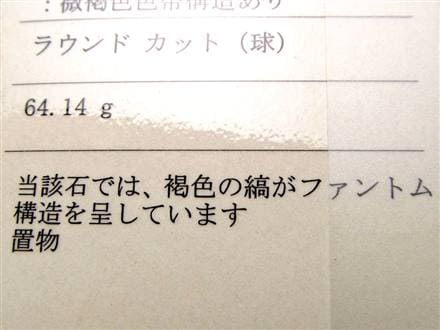 ：微褐色色帯構造あり
ラウンド カット (球)
64.14 g
当該石では、褐色の縞がファントム
構造を呈しています
置物